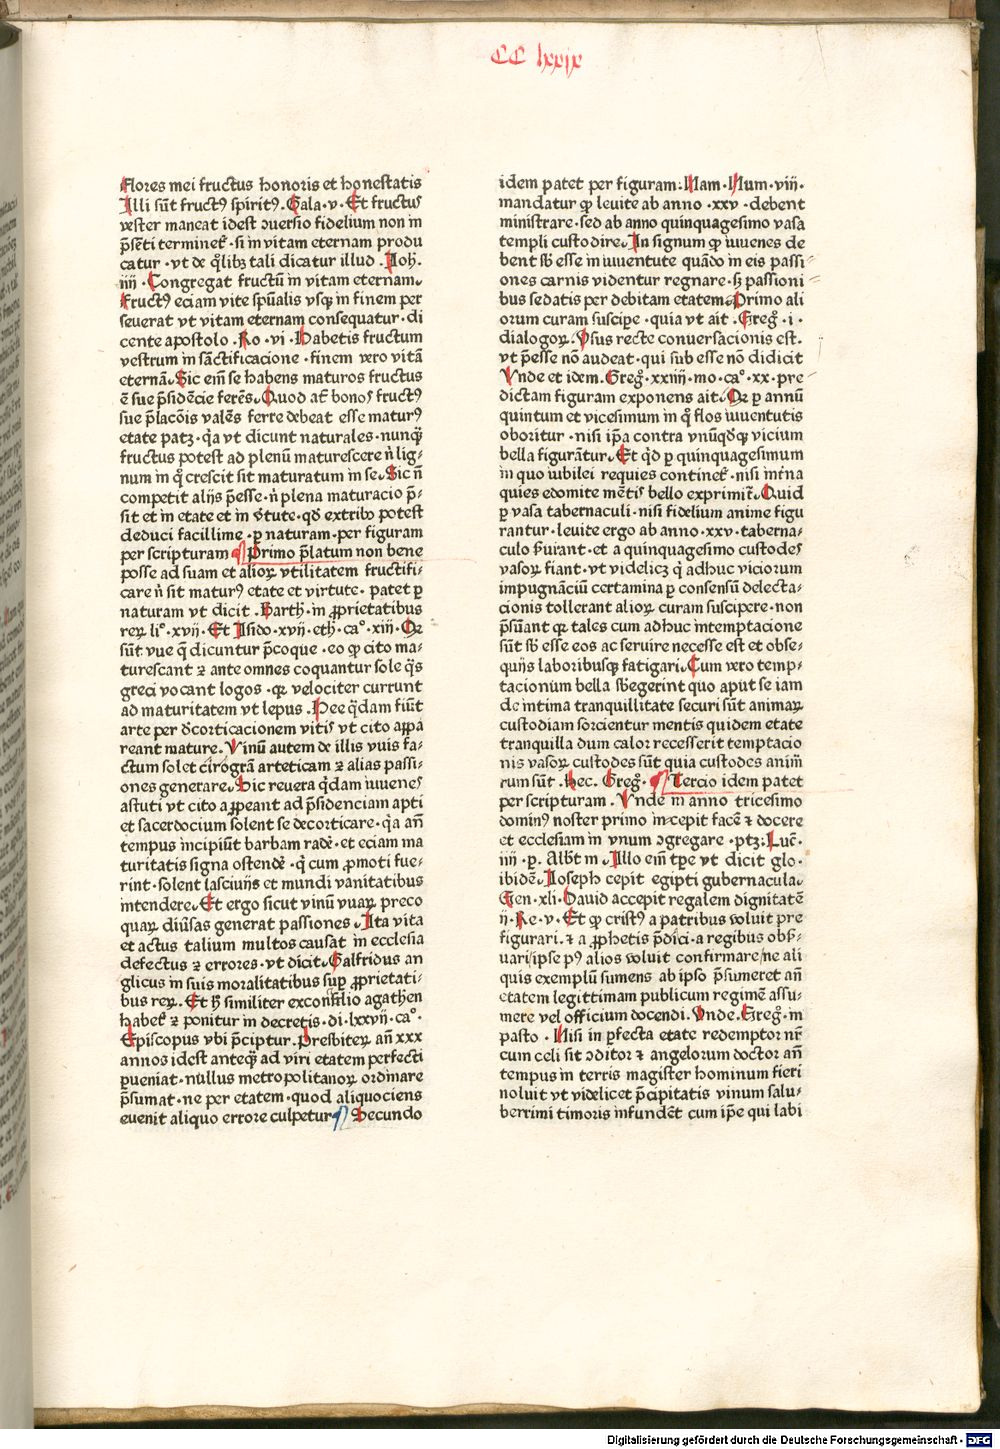 CC lxxix
Flores mei fructus honoris et honestatis
Illi sūt fructꝰ spiritꝰ. Gala·v·Et fructus
vester maneat idest ↄuersio fidelium non in
p̄sēti terminet᷑·si in vitam eternam produ
catur·vt de q̄libꝫ tali dicatur illud. Ioh.
iiij·Congregat fructū in vitam eternam.
Fructꝰ eciam vite spūalis vsqꝫ in finem per
seuerat vt vitam eternam consequatur·di
cente apostolo. Ro·vi·Habetis fructum
vestrum in sāctificacione·finem vero vitā
eternā. Sic em̄ se habens maturos fructus
ē sue p̄sidēcie ferēs. Quod at᷑ bonos fructꝰ
sue p̄lacōis valēs ferre debeat esse maturꝰ
etate patꝫ·q̄a vt dicunt naturales·nunqꝫ
fructus potest ad plenū maturescere n̄ lig⸗
num in q̄ crescit sit maturatum in se. Sic n̄
competit alijs p̄esse·n̄ plena maturacio p̄⸗
sit et in etate et in v̄tute·qđ extribꝰ potest
deduci facillime·ꝑ naturam·per figuram
per scripturam ¶ Primo p̄latum non bene
posse ad suam et alioꝝ vtilitatem fructifi⸗
care n̄ sit maturꝰ etate et virtute·patet ꝑ
naturam vt dicit. Barth·in ꝓprietatibus
reꝝ li°·xvij·Et Isido·xvij·eth·ca°·xiij·Qꝛ
sūt vue q̄ dicuntur p̄coque·eo ꝙ cito ma⸗
turescant ⁊ ante omnes coquantur sole q̄s
greci vocant logos·qꝛ velociter currunt
ad maturitatem vt lepus. Hee q̄dam fiūt
arte per đcorticacionem vitis vt cito appa
reant mature. Vinū autem de illis vuis fa⸗
ctum solet cirogrām arteticam ⁊ alias passi⸗
ones generare. Sic reuera q̄dam iuuenes
astuti vt cito appeant ad p̄sidenciam apti
et sacerdocium solent se decorticare·q̄a añ
tempus incipiūt barbam radē·et eciam ma
turitatis signa ostendē·q̄ cum ꝓmoti fue⸗
rint·solent lasciuijs et mundi vanitatibus
intendere. Et ergo sicut vinū vuaꝝ preco
quaꝝ diūsas generat passiones. Ita vita
et actus talium multos causat in ecclesia
defectus ⁊ errores·vt dicit. Galfridus an
glicus in suis moralitatibus suꝑ ꝓprietati⸗
bus reꝝ. Et ħ similiter exconsilio agathen
habet᷑ ⁊ ponitur in decretis·di·lxxvij·ca°·
Episcopus vbi p̄ciptur. Presbiteꝝ añ xxx
annos idest anteqꝫ ad viri etatem perfecti
ꝑueniat·nullus metropolitanoꝝ ordinare
p̄sumat·ne per etatem·quod aliquociens
euenit aliquo errore culpetur ¶ Secundo
idem patet per figuram: Nam·Num·viij·
mandatur ꝙ leuite ab anno·xxv·debent
ministrare·sed ab anno quinquagesimo vasa
templi custodire. In signum ꝙ iuuenes de
bent sb̄ esse in iuuentute quādo in eis passi⸗
ones carnis videntur regnare·sꝫ passioni⸗
bus sedatis per debitam etatem. Primo ali
orum curam suscipe·quia vt ait. Greg̊·i·
dialogoꝝ. Vsus recte conuersacionis est.
vt p̄esse nō audeat·qui sub esse nō didicit
Vnde et idem. Greg̊·xxiiij·mo·ca°·xx·pre⸗
dictam figuram exponens ait. Qꝛ ꝑ annū
quintum et vicesimum in q̄ flos iuuentutis
oboritur·nisi ip̄a contra vnūqđqꝫ vicium
bella figurātur. Et q̄d ꝑ quinquagesimum
in quo iubilei requies continet᷑·nisi in̄tna
quies edomite mētis bello exprimit᷑. Quid
ꝑ vasa tabernaculi·nisi fidelium anime figu
rantur·leuite ergo ab anno·xxv·taberna⸗
culo s̄uiant·et a quinquagesimo custodes
vasoꝝ fiant·vt videlicꝫ q̄ adhuc viciorum
impugnāciū certamina ꝑ consensū delecta⸗
cionis tollerant alioꝝ curam suscipere·non
p̄sūant qꝛ tales cum adhuc intemptacione
sūt sb̄ esse eos ac seruire necesse est et obse⸗
quijs laboribusqꝫ fatigari. Cum vero temp⸗
tacionum bella sb̄egerint quo aput se iam
de intima tranquillitate securi sūt animaꝝ
custodiam sorcientur mentis quidem etate
tranquilla dum calor recesserit temptacio
nis vasoꝝ custodes sūt quia custodes anim̄
rum sūt. Hec. Greg̊. ¶ Tercio idem patet
per scripturam. Vnde in anno tricesimo
dominꝰ noster primo incepit facē ⁊ docere
et ecclesiam in vnum ↄgregare·ptꝫ: Luc̄·
iiij·ꝑ. Albt̄ m. Illo em̄ tꝑe vt dicit glo·
ibidē. Ioseph cepit egipti gubernacula.
Gen·xli·Dauid accepit regalem dignitatē
ij·Re·v·Et ꝙ cristꝰ a patribus voluit pre
figurari·⁊ a ꝓphetis p̄dici·a regibus obs̄⸗
uari/ipse pꝰ alios voluit confirmare/ne ali
quis exemplū sumens ab ipso p̄sumeret añ
etatem legittimam publicum regimē assu⸗
mere vel officium docendi. Vnde. Greg̊·in
pasto·Nisi in ꝑfecta etate redemptor nr̄
cum celi sit ↄditor ⁊ angelorum doctor añ
tempus in terris magister hominum fieri
noluit vt videlicet p̄cipitatis vinum salu⸗
berrimi timoris infundēt cum ip̄e qui labi
Digitalisierung gefördert durch die Deutsche Forschungsgemeinschaft - DFG